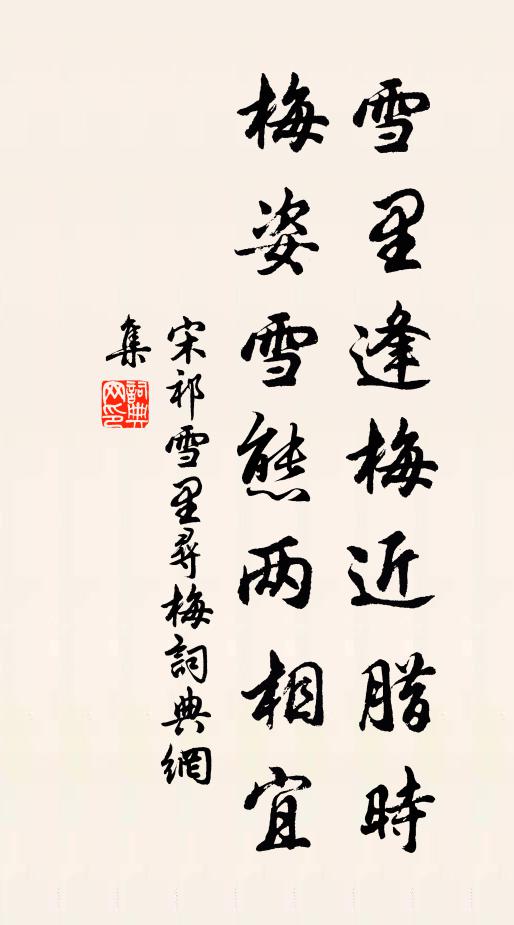 雪里逢梅近腊時
梅姿雪態两相宜
宋祁雪里尋梅詞典網
集
詞典
网印